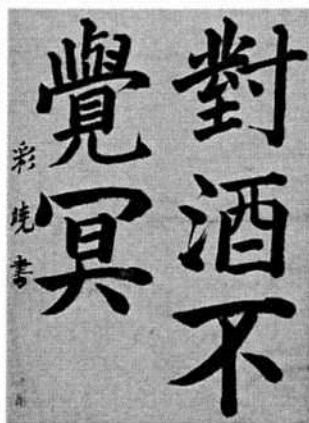 對酒不
覺冥
彩曉書